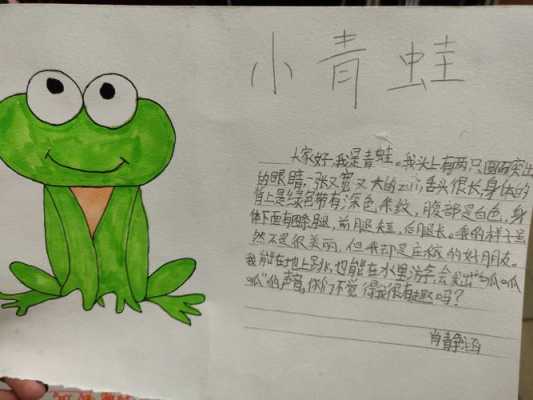 小青蛙
大家好,我是青蛙。我头上有两只圆而突出
的眼睛,一张又宽又大的zuǐ,舌头很长,身体的
背上是绿色带有深色条纹,腹部是白色,身
体下面有四条腿,前腿短,后腿长。我的样子虽
然不是很美丽,但我却是庄稼的好朋友。
我能在地上跳,也能在水里游,会发出“呱呱
呱”的声音,你们不觉得我很有趣吗?
肖静涵